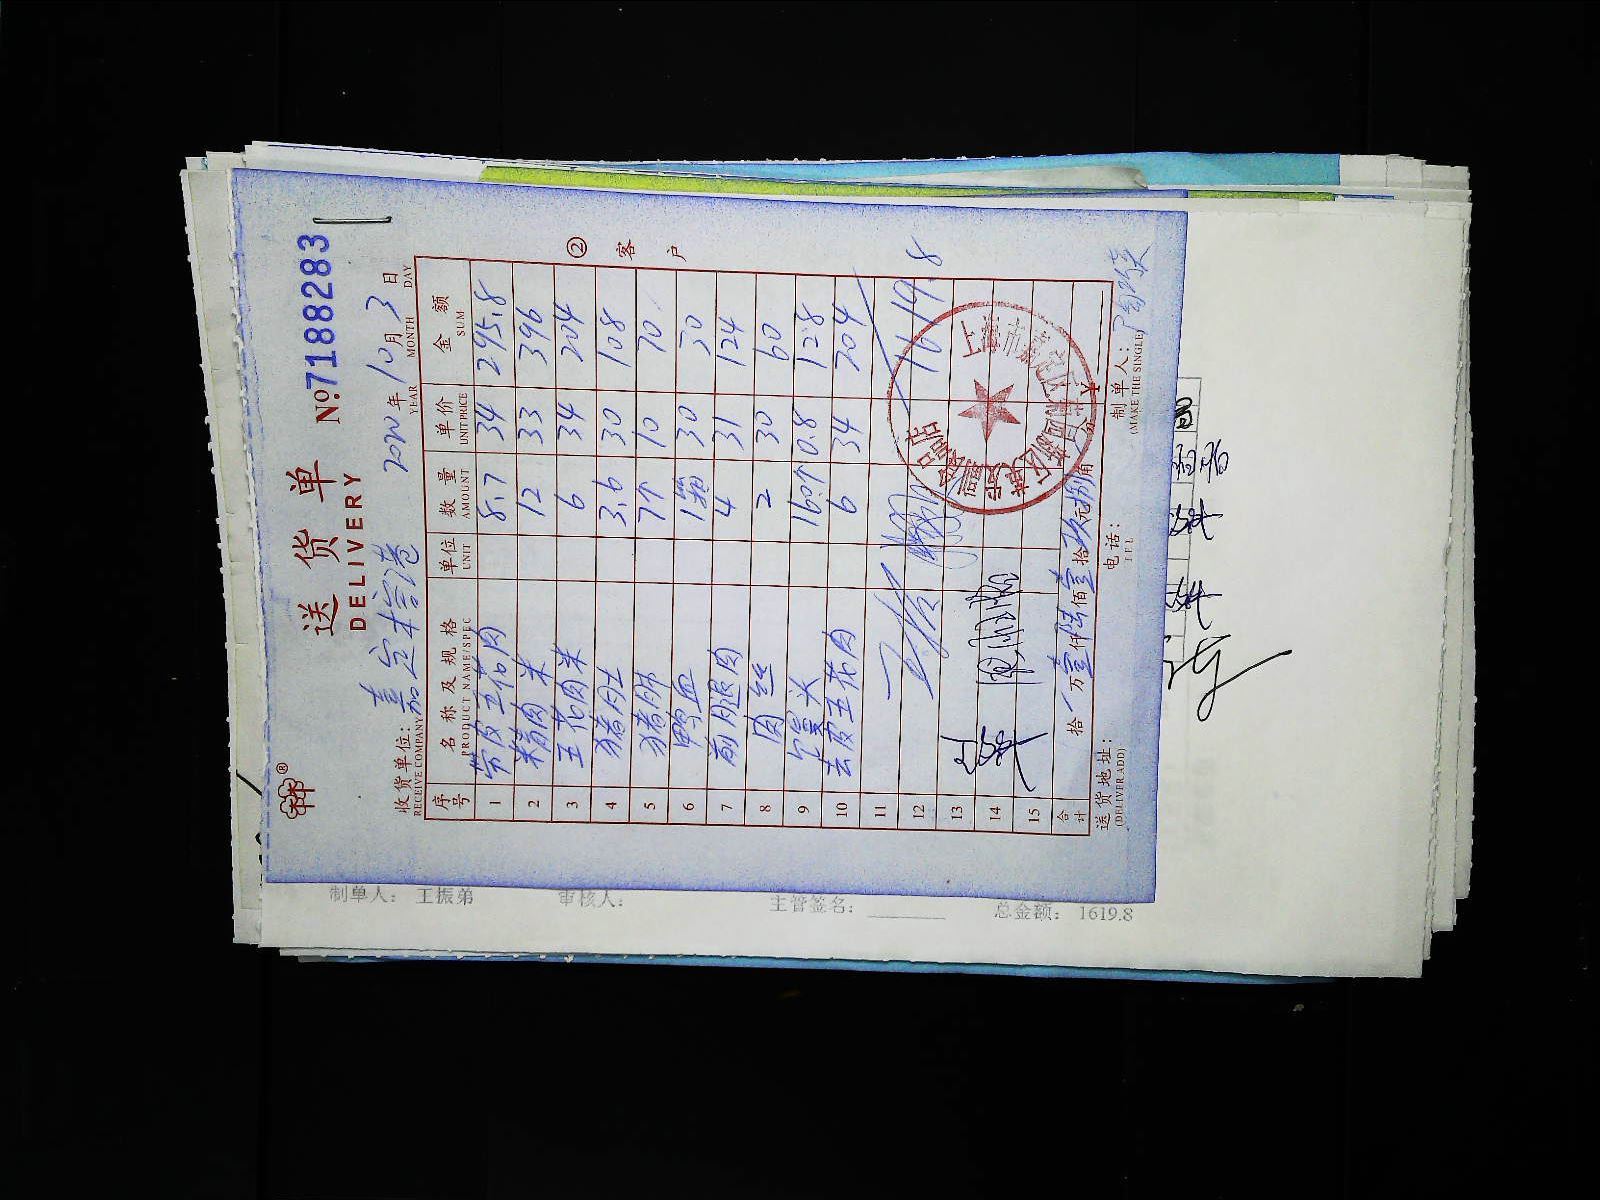 送货单
DELIVERY
№7188283
收货单位：嘉定
RECEIVE COMPANY
2020年10月3日
YEAR MONTH DAY
序号 名称及规格 单位 数量 单价 金额
PRODUCT NAME/SPEC UNIT AMOUNT UNIT PRICE SUM
1 带皮五花肉 8.7 34 295.8
2 精肉米 12 33 396
3 五花肉米 6 34 204
4 猪肚 3.6 30 108
5 猪肺 7个 10 70
6 鸭血 1箱 30 30
7 前腿肉 4 31 124
8 肉丝 2 30 60
9 馒头 160个 0.8 128
10 去皮五花肉 6 34 204
11
12 1619.8
13
14
15
合计 拾 万壹仟陆佰壹拾玖元捌角 分 ¥
送货地址：
(DELIVER ADD)
电话：
TEL
制单人：
(MAKE THE SINGLE)
② 客户
上海市嘉定区
制单人： 王振弟 审核人： 主管签名： 总金额： 1619.8